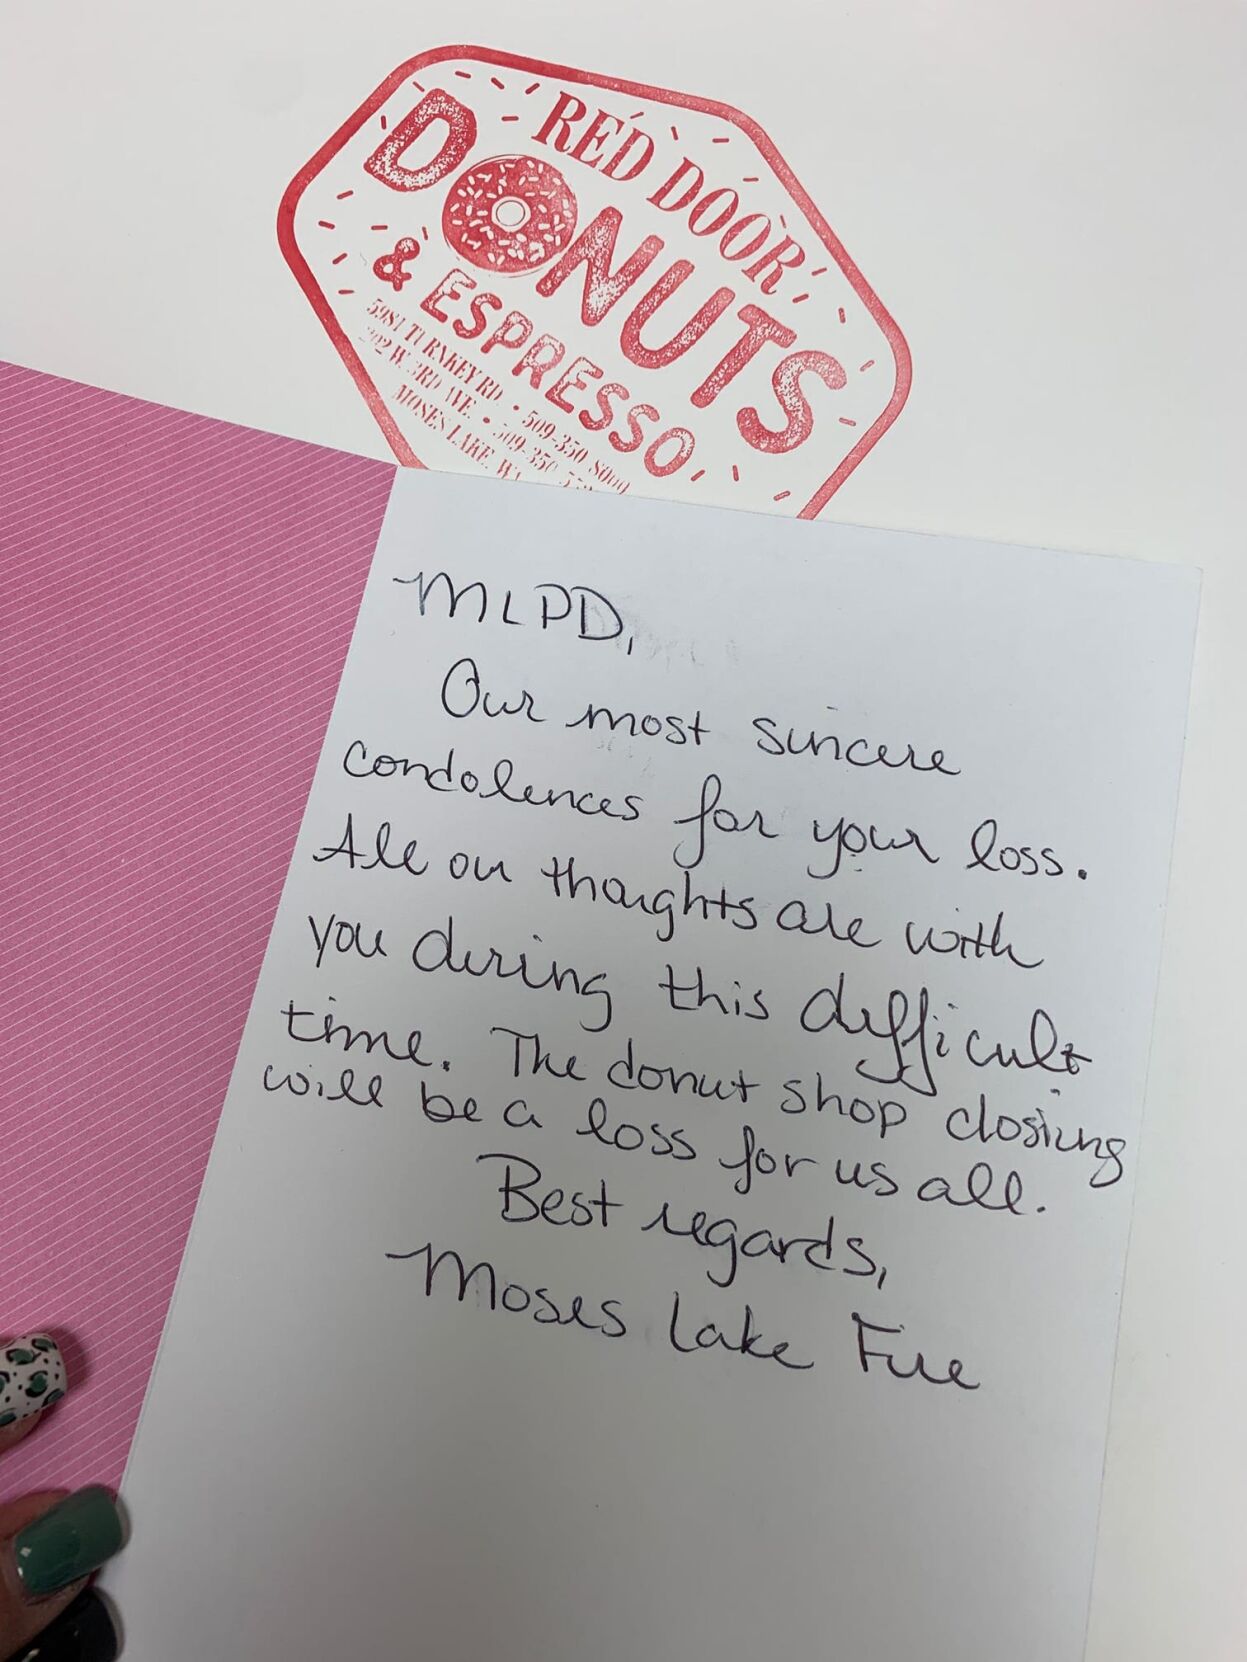 RED DOOR
DONUTS
& ESPRESSO
5981 TURNKEY RD • 509-350-8000
W. 3RD AVE. • 509-350-
MOSES LAKE, WA
MLPD,
Our most sincere
condolences for your loss.
All our thoughts are with
you during this difficult
time. The donut shop closing
will be a loss for us all.
Best regards,
Moses Lake Fire